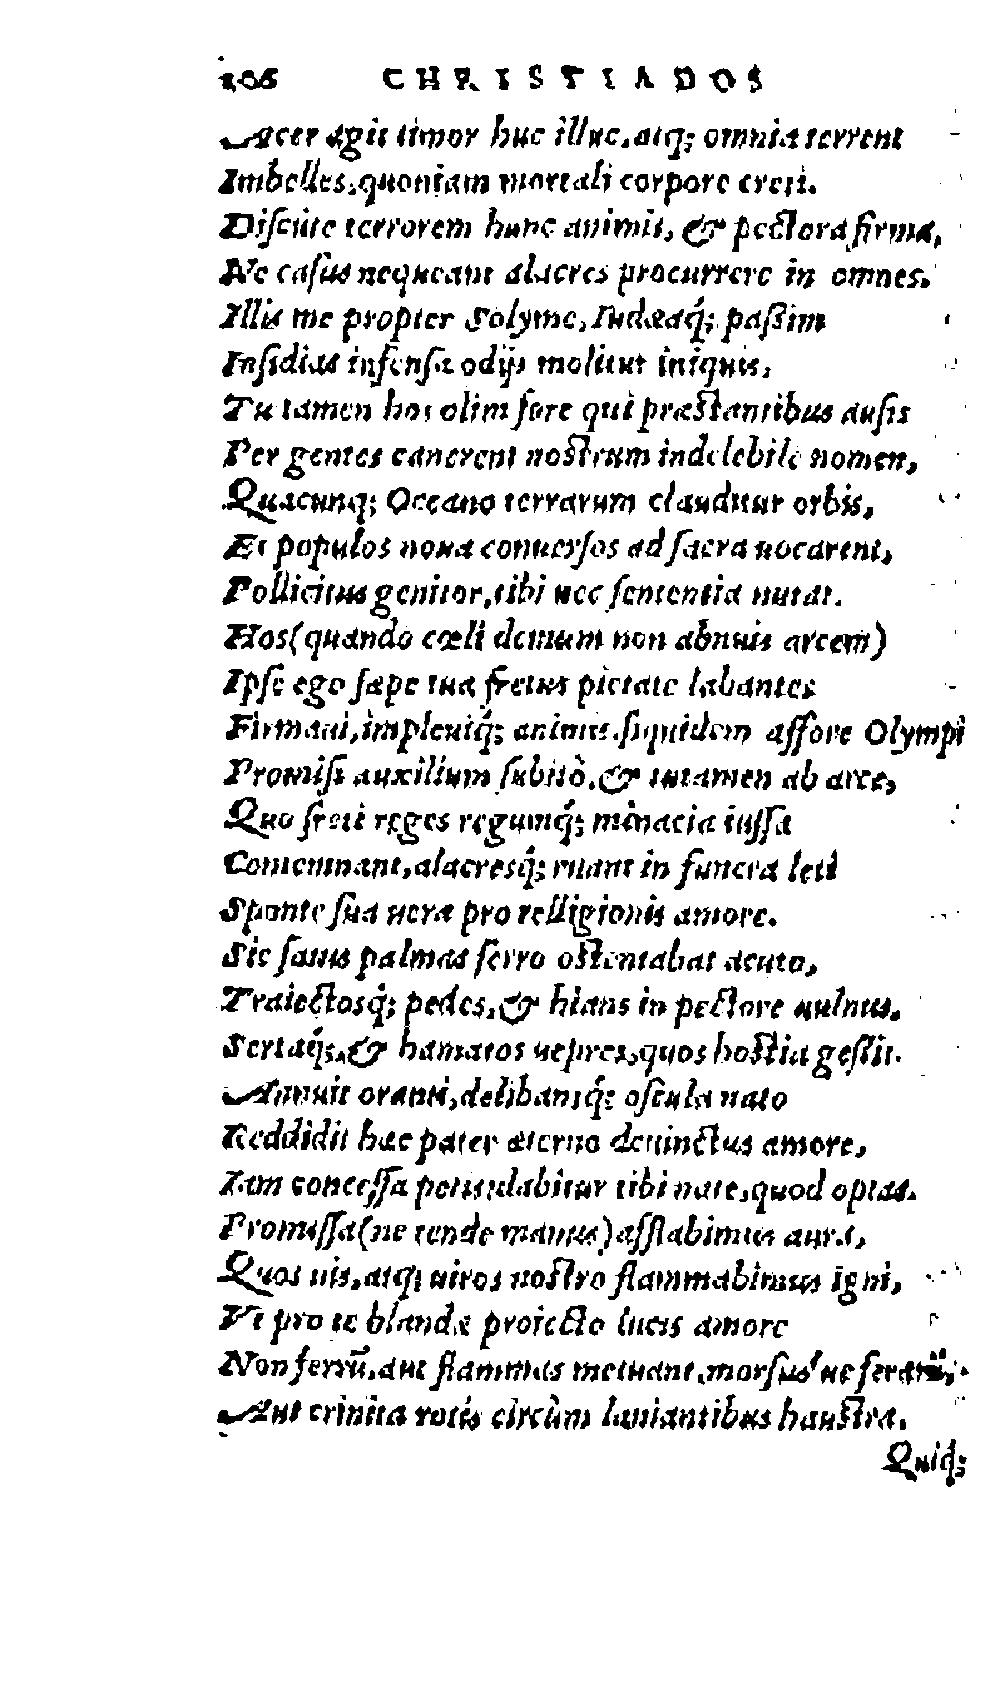 106 CHRISTIADOS
Acer agit timor huc illuc, atq; omnia terrent
Imbelles, quoniam mortali corpore creti.
Discute terrorem hunc animis, & pectora firma,
Ne casus nequeant alacres procurrere in omnes.
Illis me propter Solymę, Iudæaq́; passim
Insidias infensa odijs molitur iniquis,
Tu tamen hos olim fore qui præstantibus ausis
Per gentes canerent nostrum indelebile nomen,
Quacunq; Oceano terrarum clauditur orbis,
Et populos noua conuersos ad sacra uocarent,
Pollicitus genitor, tibi nec sententia nutat.
Hos (quando cœli demum non abnuis arcem)
Ipse ego sæpe tua fretus pietate labantes
Firmaui, impleuiq́; animis. siquidem affore Olympi
Promisi auxilium subitò, & tutamen ab arce,
Quo freti reges regumq́; minacia iussa
Contemnant, alacresq́; ruant in funera leti
Sponte sua uera pro relligionis amore.
Sic fatus palmas ferro ostentabat acuto,
Traiectosq́; pedes, & hians in pectore uulnus.
Sertaq́;, & hamatos uepres, quos hostia gestit.
Annuit oranti, delibansq́; oscula nato
Reddidit hæc pater æterno deuinctus amore,
Iam concessa petis, dabitur tibi nate, quod optas.
Promissa (ne tende manus) afflabimus aura,
Quos uis, atq; uiros nostro flammabimus igni,
Vt pro te blandæ proiecto lucis amore
Non ferrũ, aut flammas metuant, morsus ue ferarũ,
Aut crinita rotis circùm laniantibus haustra.
Quiq;